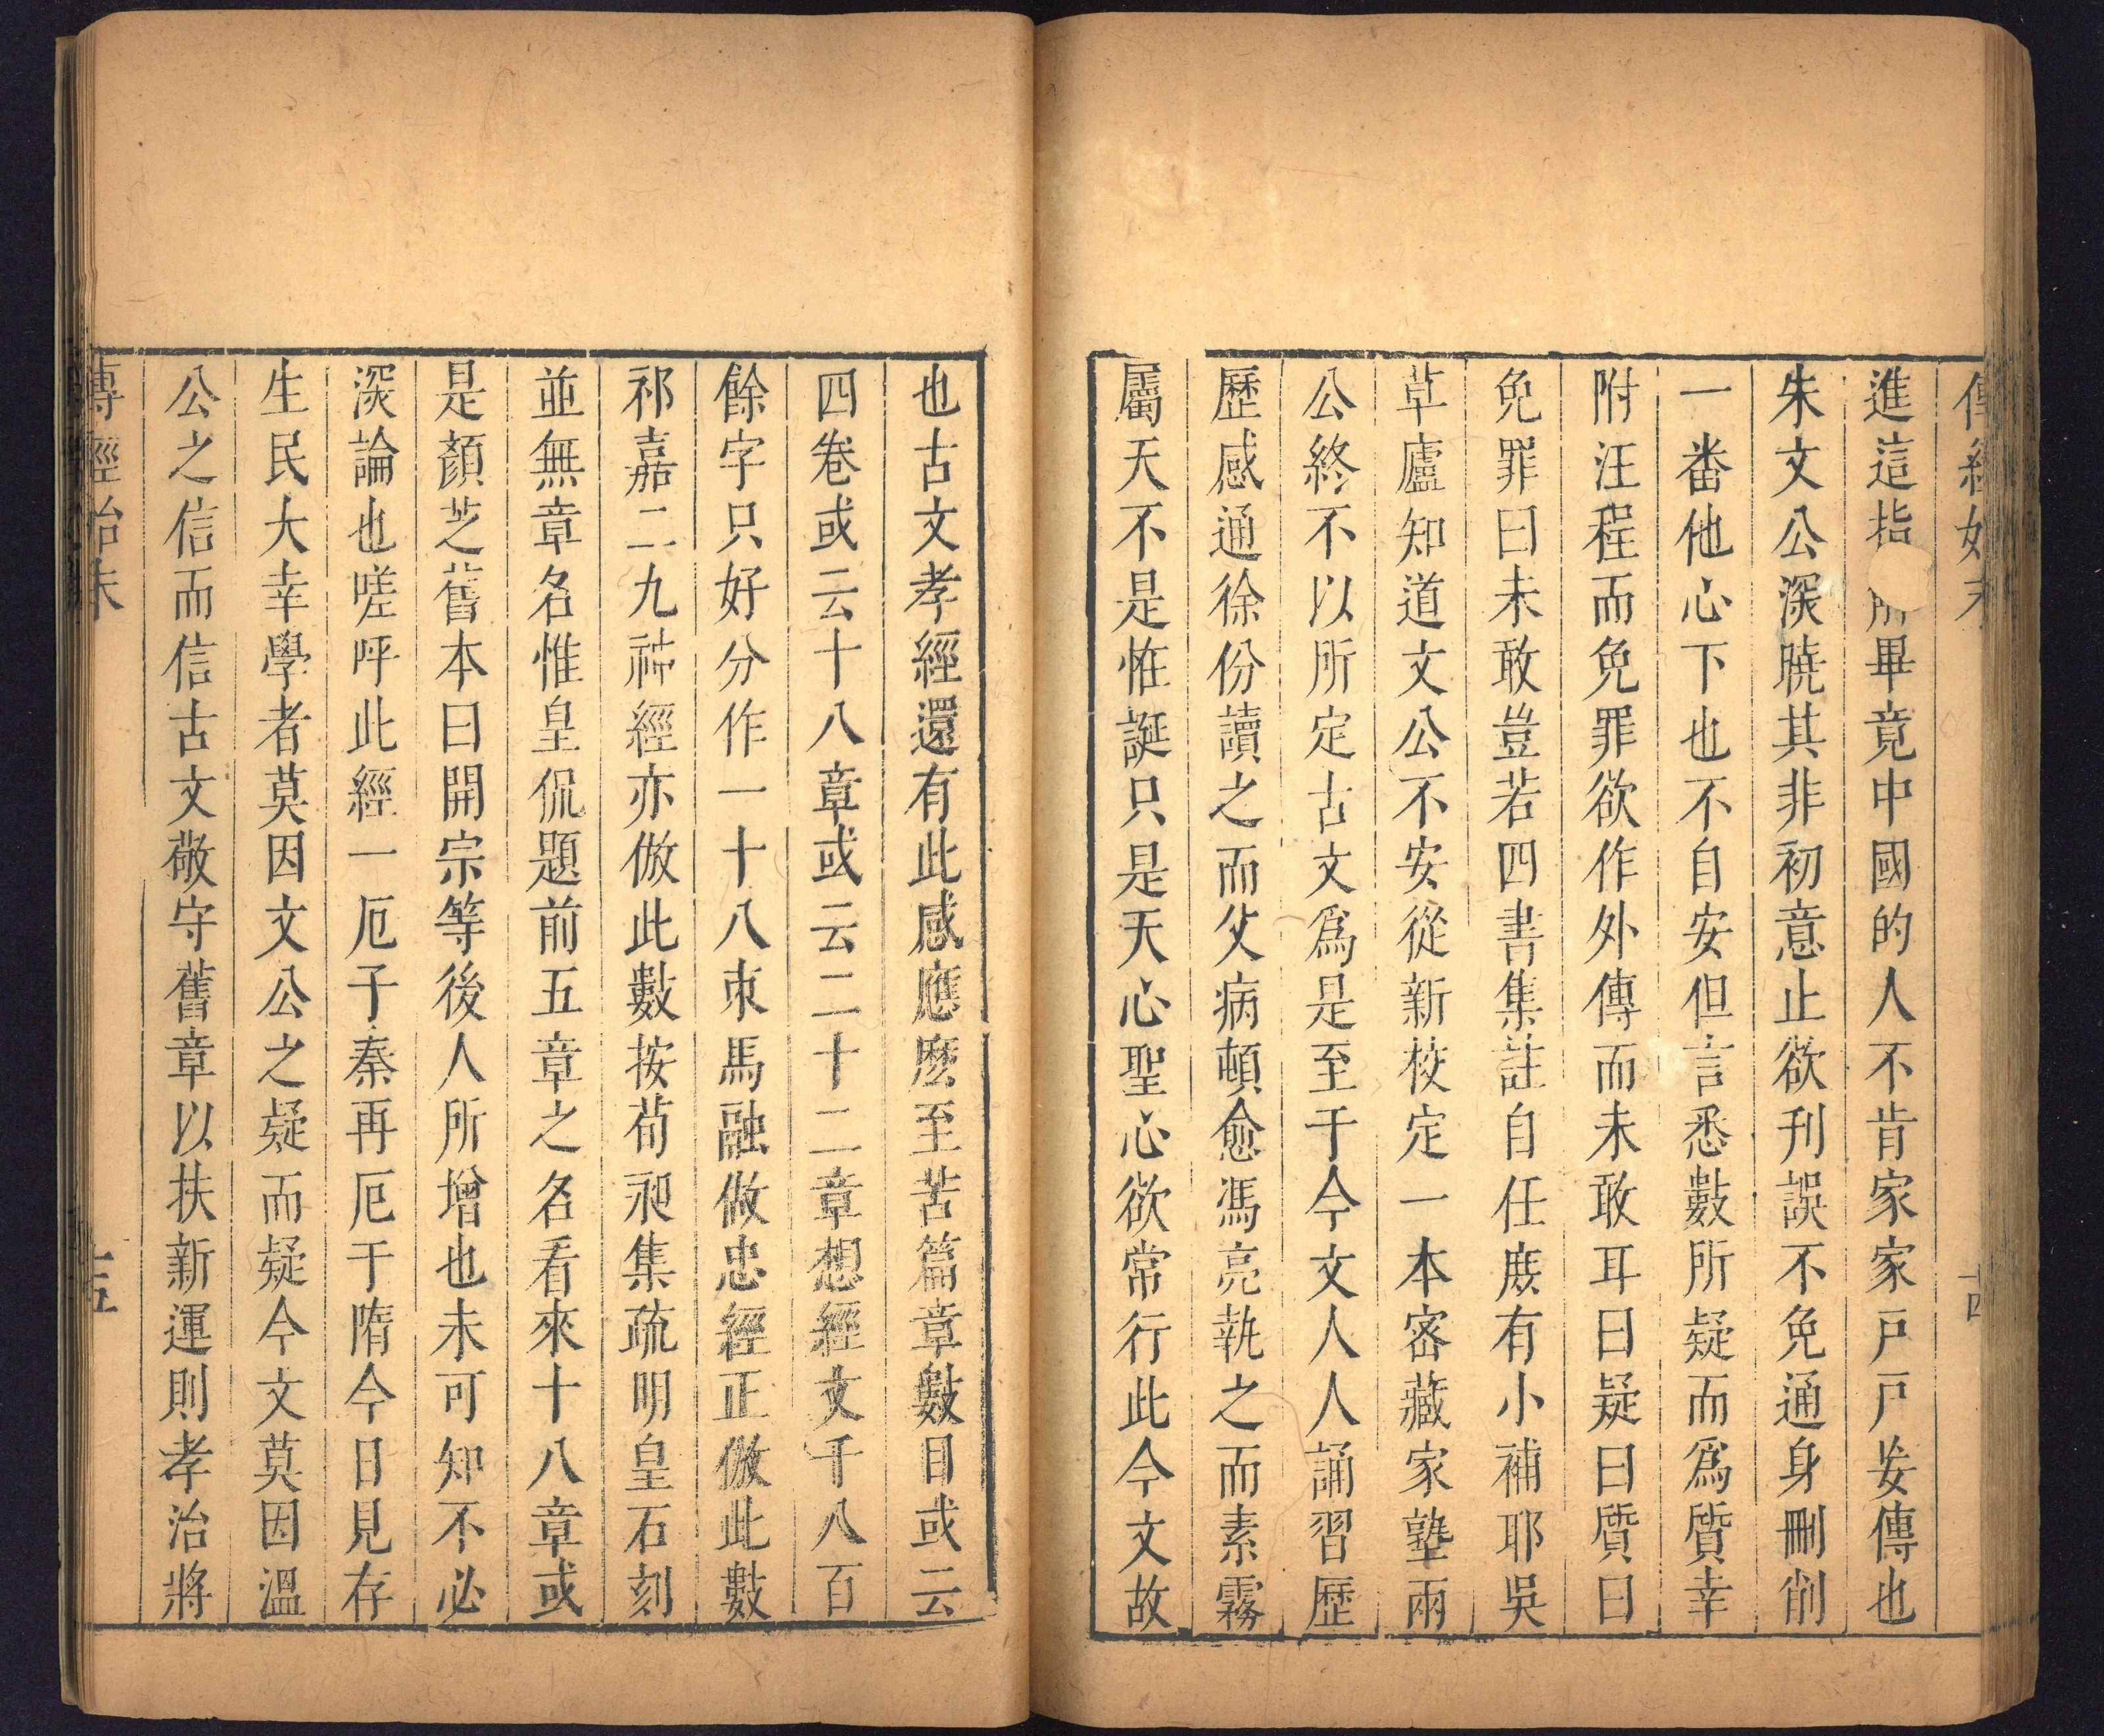 進這指所畢竟中國的人不肯家家戸戸妄傳也
朱文公深曉其非初意止欲刋誤不免通身刪削
一畨他心下也不自安但言悉數所疑而爲質幸
附汪程而免罪欲作外傳而未敢耳曰疑曰質曰
免罪曰未敢豈若四書集註自任庻有小補耶吳
草廬知道文公不安從新校定一本宻藏家塾兩
公終不以所定古文爲是至于今文人人誦習歷
歷感通徐份讀之而父病頓愈馮亮執之而素霧
屬天不是恠誕只是天心聖心欲常行此今文故
也古文孝經還有此感應麽至苦篇章數目或云
四卷或云十八章或云二十二章想經文千八百
餘字只好分作一十八束馬融做忠經正倣此數
祁嘉二九神經亦倣此數按荀昶集疏明皇石刻
並無章名惟皇侃題前五章之名看來十八章或
是顏芝舊本曰開宗等後人所增也未可知不必
深論也嗟呼此經一厄于秦再厄于隋今日見存
生民大幸學者莫因文公之疑而疑今文莫因溫
公之信而信古文敬守舊章以扶新運則孝治將
傳經始末
十五